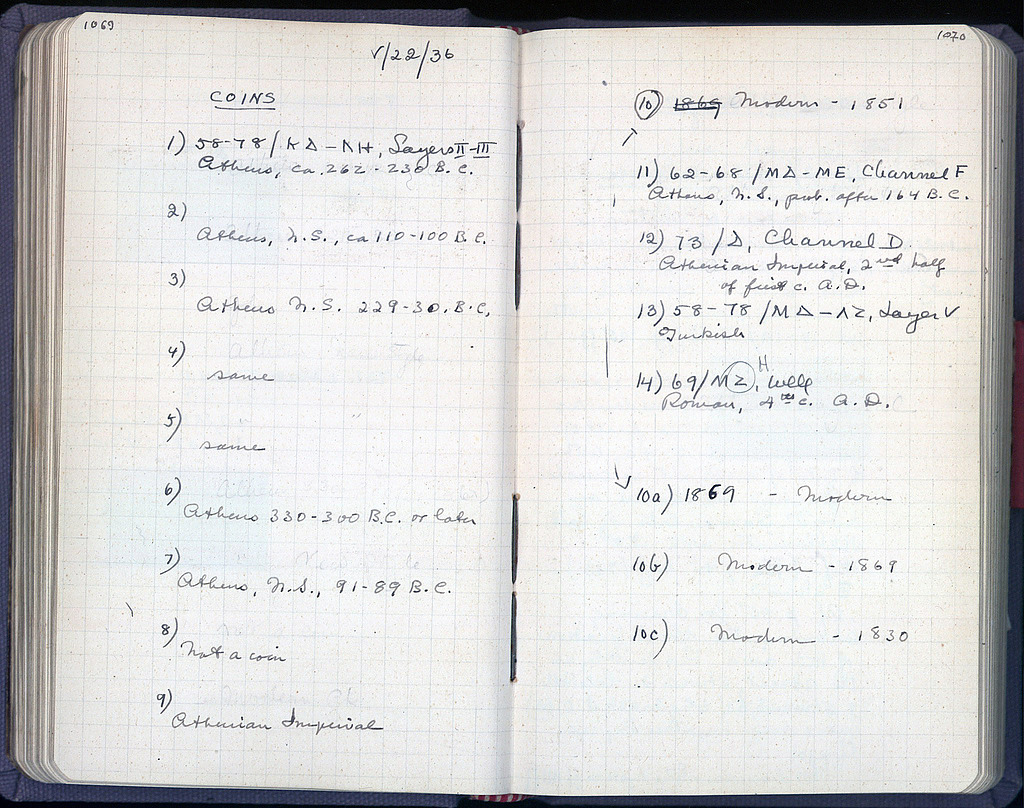 1069
V/22/36
COINS
1) 58-78/ΚΔ-ΛΗ, Layers II-III
Athens, ca. 262-230 B.C.
2)
Athens, N.S., ca 110-100 B.C.
3)
Athens N.S. 229-30. B.C.
4)
same
5)
same
6)
Athens 330-300 B.C. or later
7)
Athens, N.S., 91-89 B.C.
8)
Not a coin
9)
Athenian Imperial
1070
10) 1869 Modern - 1851
11) 62-68/ΜΔ-ΜΕ, Channel F
Athens, N.S., prob. after 164 B.C.
12) 73/Δ, Channel D
Athenian Imperial, 2nd half
of first c. A.D.
13) 58-78/ΜΔ-ΛΖ, Layer V
Turkish
H
14) 69/ΜΖ, well
Roman, 4th c. A.D.
10a) 1869 - Modern
10b) Modern - 1869
10c) Modern - 1830